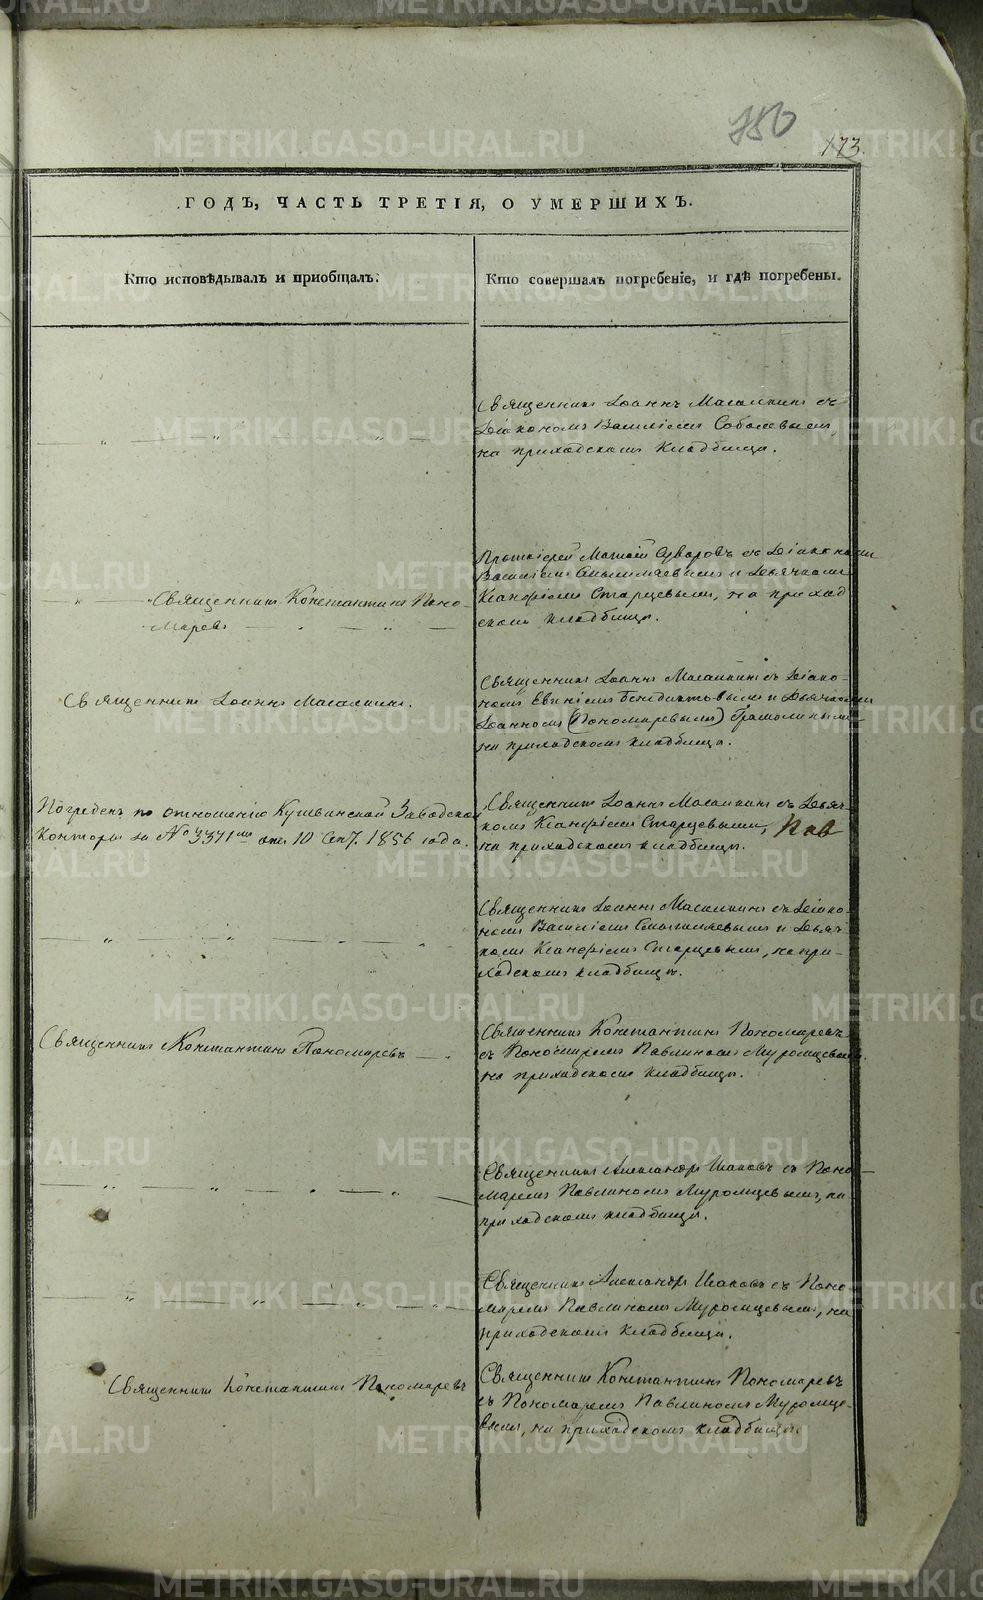 750
173.
ГОДЪ, ЧАСТЬ ТРЕТІЯ, О УМЕРШИХЪ.
Кто исповѣдывалъ и пріобщалъ.
Кто совершалъ погребеніе, и гдѣ погребены.
Священникъ Іоаннъ Масалкинъ съ
Діакономъ Василіемъ Соболевымъ,
на приходскомъ кладбищѣ.
Священникъ Константинъ Поно-
маревъ
Протоіерей Матѳій Суворовъ съ Діакономъ
Василіемъ и Дьячкомъ
Ксанфіемъ Старцевымъ, на приход
скомъ кладбищѣ.
Священникъ Іоаннъ Масалкинъ.
Священникъ Іоаннъ Масалкинъ съ Діако-
номъ и Дьячкомъ
Іоанномъ (Пономаревымъ)
на приходскомъ кладбищѣ.
Погребенъ по отношенію Кушвинской Заводской
Конторы за № 3371мъ отъ 10 Сент. 1856 года.
Священникъ Іоаннъ Масалкинъ съ Дьяч-
комъ Ксанфіемъ Старцевымъ,
на приходскомъ кладбищѣ.
Священникъ Іоаннъ Масалкинъ съ Діако-
номъ Василіемъ и Дьяч-
комъ Ксанфіемъ Старцевымъ, на при-
ходскомъ кладбищѣ.
Священникъ Константинъ Пономаревъ
Священникъ Константинъ Пономаревъ
съ Пономаремъ Павлиномъ Муромцевымъ
на приходскомъ кладбищѣ.
Священникъ Александръ съ Поно-
маремъ Павлиномъ Муромцевымъ, на
приходскомъ кладбищѣ.
Священникъ Александръ съ Поно-
маремъ Павлиномъ Муромцевымъ, на
приходскомъ кладбищѣ.
Священникъ Константинъ Пономаревъ
Священникъ Константинъ Пономаревъ
съ Пономаремъ Павлиномъ Муромце-
вымъ, на приходскомъ кладбищѣ.
METRIKI.GASO-URAL.RU